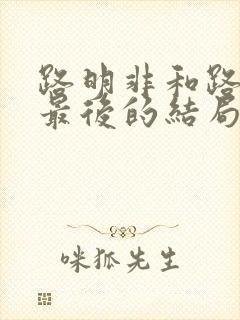 路明非和路
最後的結局
咪狐先生